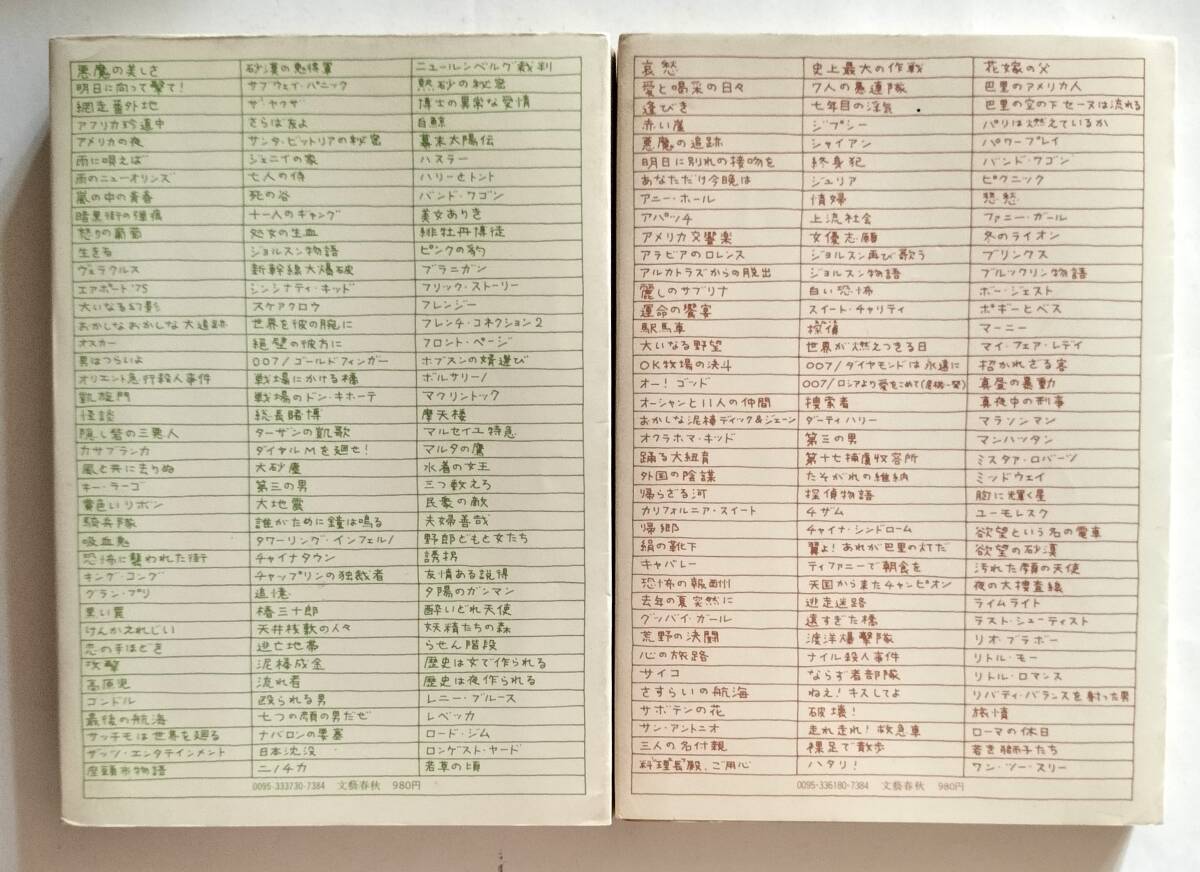 悪魔の美しさ 砂漠の鬼将軍 ニュールンベルグ裁判
明日に向って撃て! サブウェイ・パニック 熱砂の秘密
網走番外地 ザ・ヤクザ 博士の異常な愛情
アフリカ珍道中 さらば友よ 白鯨
アメリカの夜 サンタ・ビットリアの秘密 幕末太陽伝
雨に唄えば ジェニイの家 ハスラー
雨のニューオリンズ 七人の侍 ハリーとトント
嵐の中の青春 死の谷 バンド・ワゴン
暗黒街の弾痕 十一人のギャング 美女ありき
怒りの葡萄 処女の生血 緋牡丹博徒
生きる ジョルスン物語 ピンクの豹
ヴェラクルス 新幹線大爆破 ブラニガン
エアポート'75 シンシナティ・キッド フリック・ストーリー
大いなる幻影 スケアクロウ フレンジー
おかしなおかしな大追跡 世界を彼の腕に フレンチ・コネクション2
オスカー 絶壁の彼方に フロント・ページ
男はつらいよ 007/ゴールドフィンガー ホブスンの婿選び
オリエント急行殺人事件 戦場にかける橋 ボルサリーノ
凱旋門 戦場のドン・キホーテ マクリントック
怪談 総長賭博 摩天楼
隠し砦の三悪人 ターザンの凱歌 マルセイユ特急
カサブランカ ダイヤルMを廻せ! マルタの鷹
風と共に去りぬ 大砂塵 水着の女王
キー・ラーゴ 第三の男 三つ数えろ
黄色いリボン 大地震 民衆の敵
騎兵隊 誰がために鐘は鳴る 夫婦善哉
吸血鬼 タワーリング・インフェルノ 野郎どもと女たち
恐怖に襲われた街 チャイナタウン 誘拐
キング・コング チャップリンの独裁者 友情ある説得
グラン・プリ 追憶 夕陽のガンマン
黒い罠 椿三十郎 酔いどれ天使
けんかえれじい 天井桟敷の人々 妖精たちの森
恋の手ほどき 逃亡地帯 らせん階段
攻撃 泥棒成金 歴史は女で作られる
高原児 流れ者 歴史は夜作られる
ゴンドル 殴られる男 レニー・ブルース
最後の航海 七つの顔の男だぜ レベッカ
サッチモは世界を廻る ナバロンの要塞 ロード・ジム
ザッツ・エンタテインメント 日本沈没 ロンゲスト・ヤード
座頭市物語 二ノチカ 若草の頃
0095-333730-7384 文藝春秋 980円
哀愁 史上最大の作戦 花嫁の父
愛と喝采の日々 7人の愚連隊 巴里のアメリカ人
逢びき 七年目の浮気 巴里の空の下セーヌは流れる
赤い崖 ジプシー パリは燃えているか
悪魔の追跡 シャイアン パワープレイ
明日に別れの接吻を 終身犯 バンド・ワゴン
あなただけ今晩は ジュリア ピクニック
アニー・ホール 情婦 悲愁
アパッチ 上流社会 ファニー・ガール
アメリカ交響楽 女優志願 冬のライオン
アラビアのロレンス ジョルスン再び歌う ブリンクス
アルカトラズからの脱出 ジョルスン物語 ブルックリン物語
麗しのサブリナ 白い恐怖 ボー・ジェスト
運命の饗宴 スイート・チャリティ ポギーとベス
駅馬車 探偵 マーニー
大いなる野望 世界が燃えつきる日 マイ・フェア・レディ
OK牧場の決斗 007/ダイヤモンドは永遠に 招かれざる客
オー!ゴッド 007/ロシアより愛をこめて(危機一発) 真昼の暴動
オーシャンと11人の仲間 捜索者 真夜中の刑事
おかしな泥棒ディック&ジェーン ダーティハリー マラソンマン
オクラホマ・キッド 第三の男 マンハッタン
踊る大紐育 第十七捕虜収容所 ミスタア・ロバーツ
外国の陰謀 たそがれの維納 ミッドウェイ
帰らざる河 探偵物語 胸に輝く星
カリフォルニア・スイート チザム ユーモレスク
帰郷 チャイナ・シンドローム 欲望という名の電車
絹の靴下 翼よ!あれが巴里の灯だ 欲望の砂漠
キャバレー ティファニーで朝食を 汚れた顔の天使
恐怖の報酬 天国から来たチャンピオン 夜の大捜査線
去年の夏突然に 逃走迷路 ライムライト
グッバイ・ガール 遠すぎた橋 ラスト・シューティスト
荒野の決闘 渡洋爆撃隊 リオ・ブラボー
心の旅路 ナイル殺人事件 リトル・モー
サイコ ならず者部隊 リトル・ロマンス
さすらいの航海 ねえ!キスしてよ リバティ・バランスを射った男
サボテンの花 破壊! 旅情
サン・アントニオ 走れ走れ!救急車 ローマの休日
三人の名付親 裸足で散歩 若き獅子たち
料理長殿、ご用心 ハタリ! ワン・ツー・スリー
0095-336180-7384 文藝春秋 980円